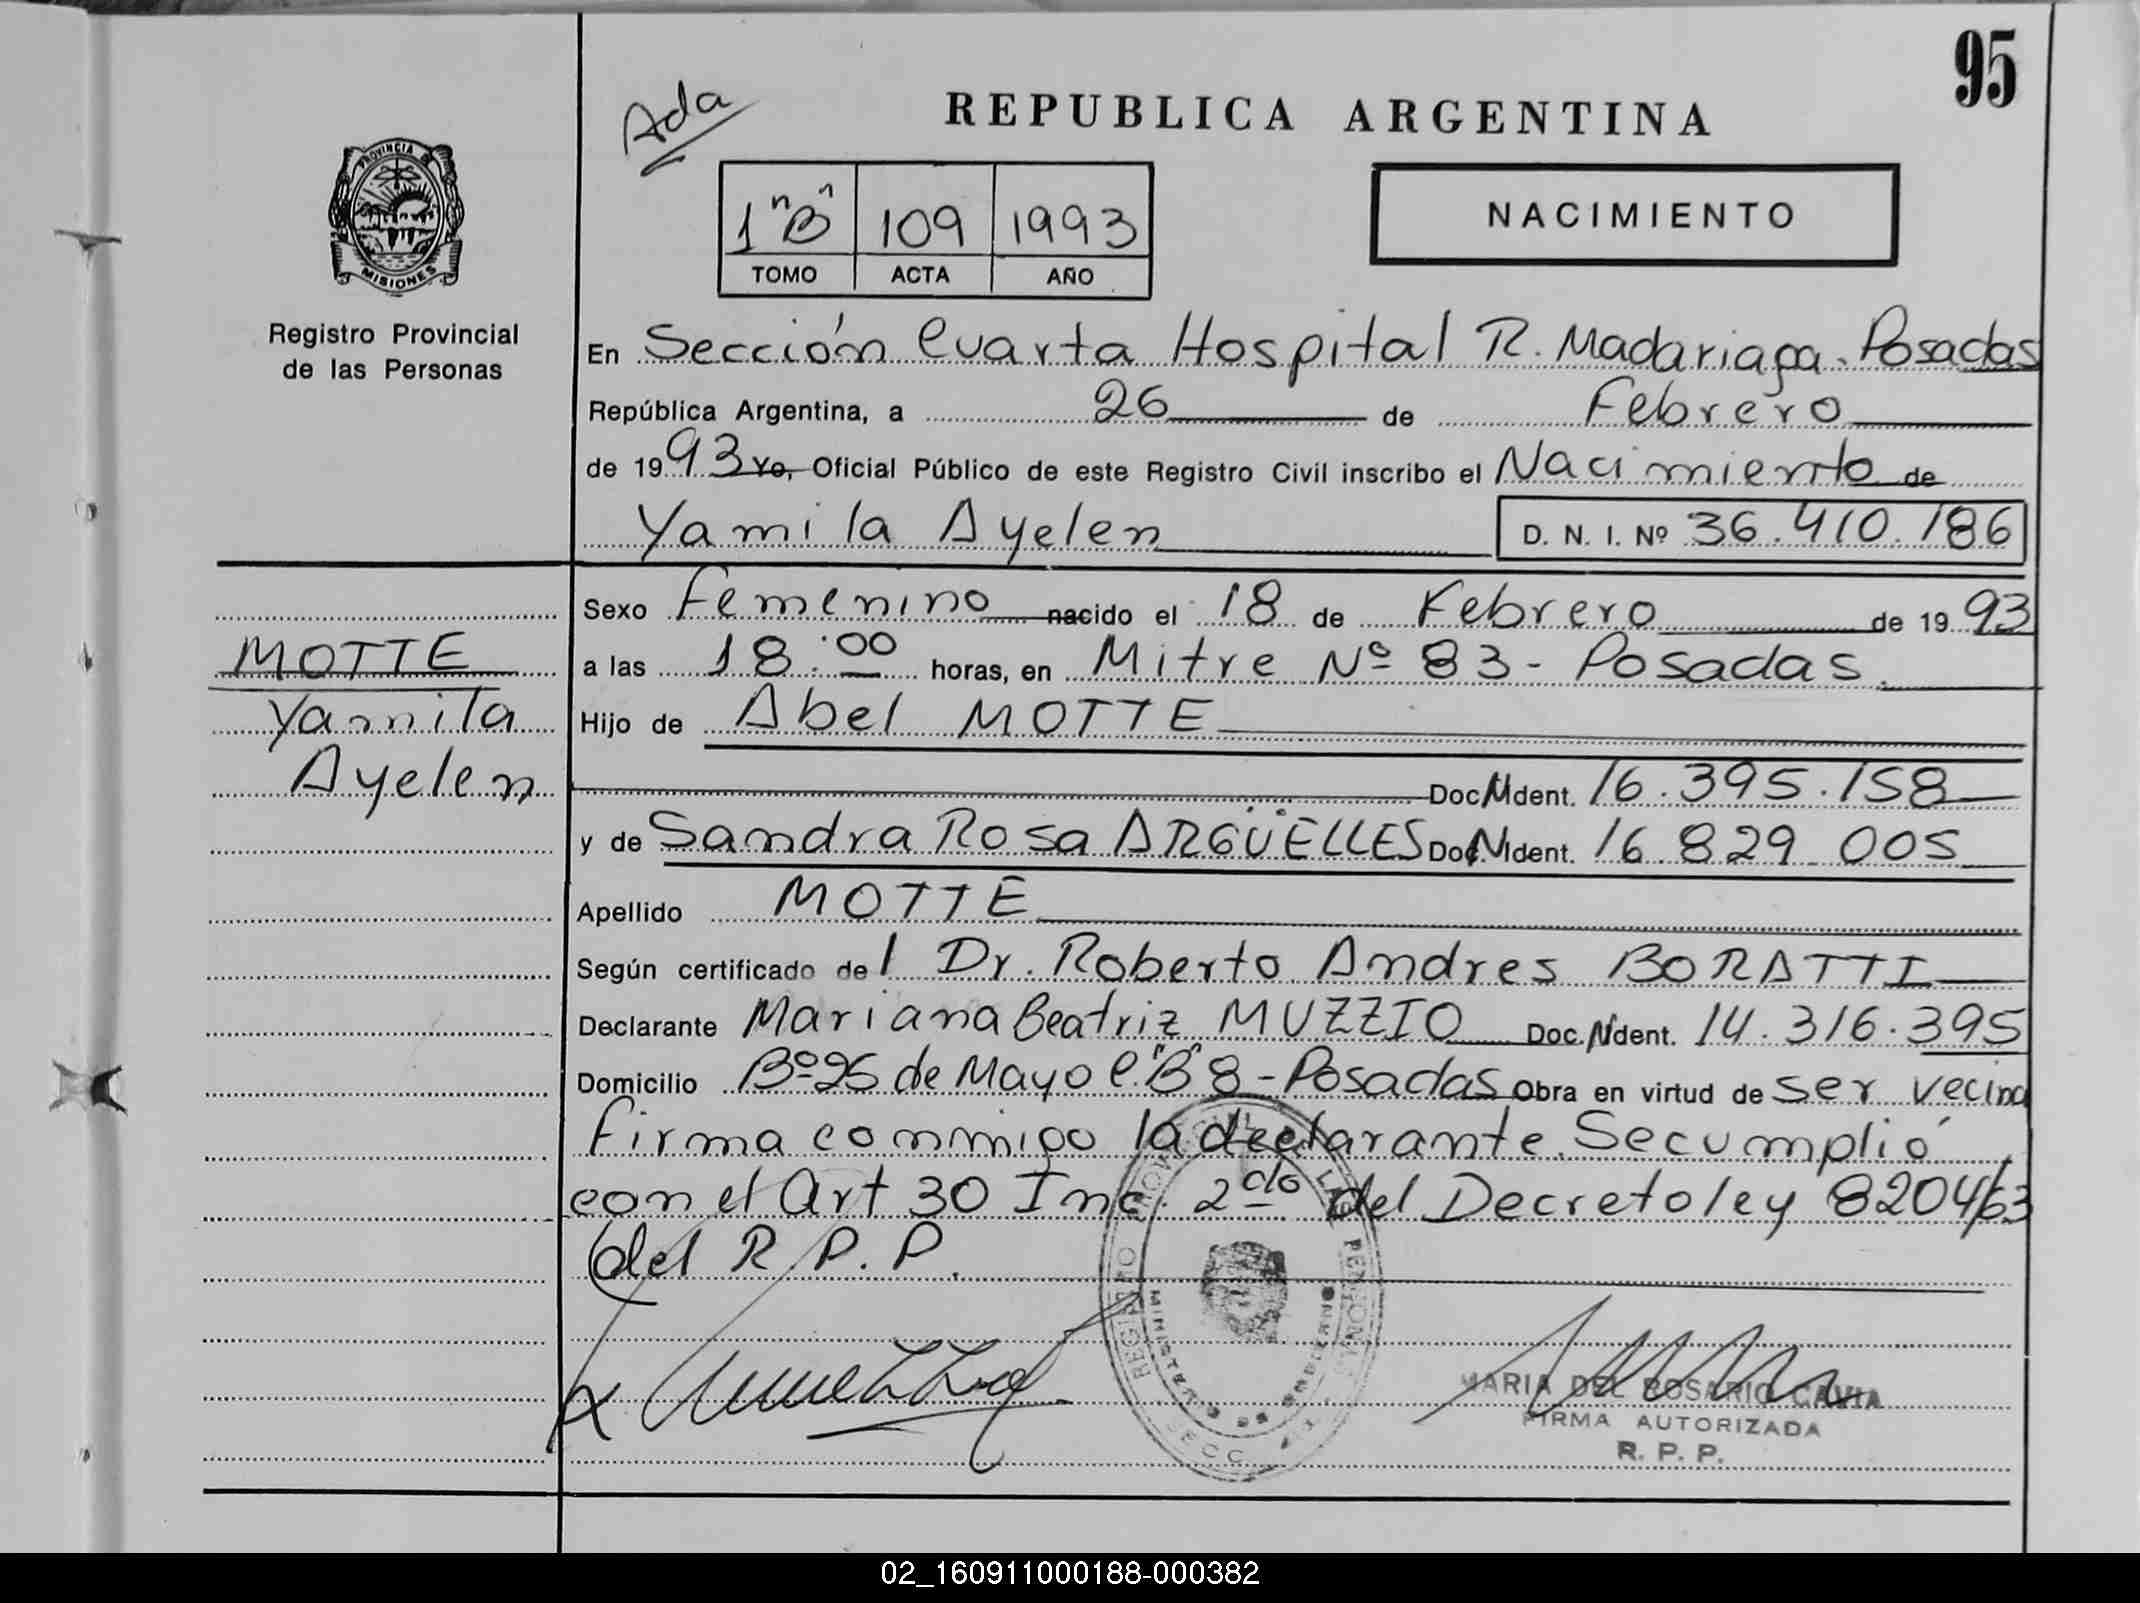 95
Ada
REPUBLICA ARGENTINA
PROVINCIA DE
MISIONES
1 "B" 109 1993
TOMO ACTA AÑO
NACIMIENTO
Registro Provincial
de las Personas
En Sección Cuarta Hospital R. Madariaga. Posadas
República Argentina, a 26 de Febrero
de 1993 Yo, Oficial Público de este Registro Civil inscribo el Nacimiento de
Yamila Ayelen D. N. I. Nº 36.410.186
Sexo Femenino nacido el 18 de Febrero de 1993
MOTTE
Yamila
Ayelen
a las 18:00 horas, en Mitre Nº 83 - Posadas.
Hijo de Abel MOTTE
Doc. N Ident. 16.395.158
y de Sandra Rosa ARGÜELLES Doc. N Ident. 16.829.005
Apellido MOTTE
Según certificado del Dr. Roberto Andres BORATTI
Declarante Mariana Beatriz MUZZIO Doc. N Ident. 14.316.395
Domicilio Bº 25 de Mayo C. "B" 8 - Posadas Obra en virtud de ser vecina
firma conmigo la declarante. Se cumplió
con el Art 30 Inc. 2do del Decreto ley 8204/63
del R.P.P.
REGISTRO PROVINCIAL DE LAS PERSONAS
MINISTERIO DE GOBIERNO
SECC. 4
MARIA DEL ROSARIO CAVIA
FIRMA AUTORIZADA
R. P. P.
02_160911000188-000382